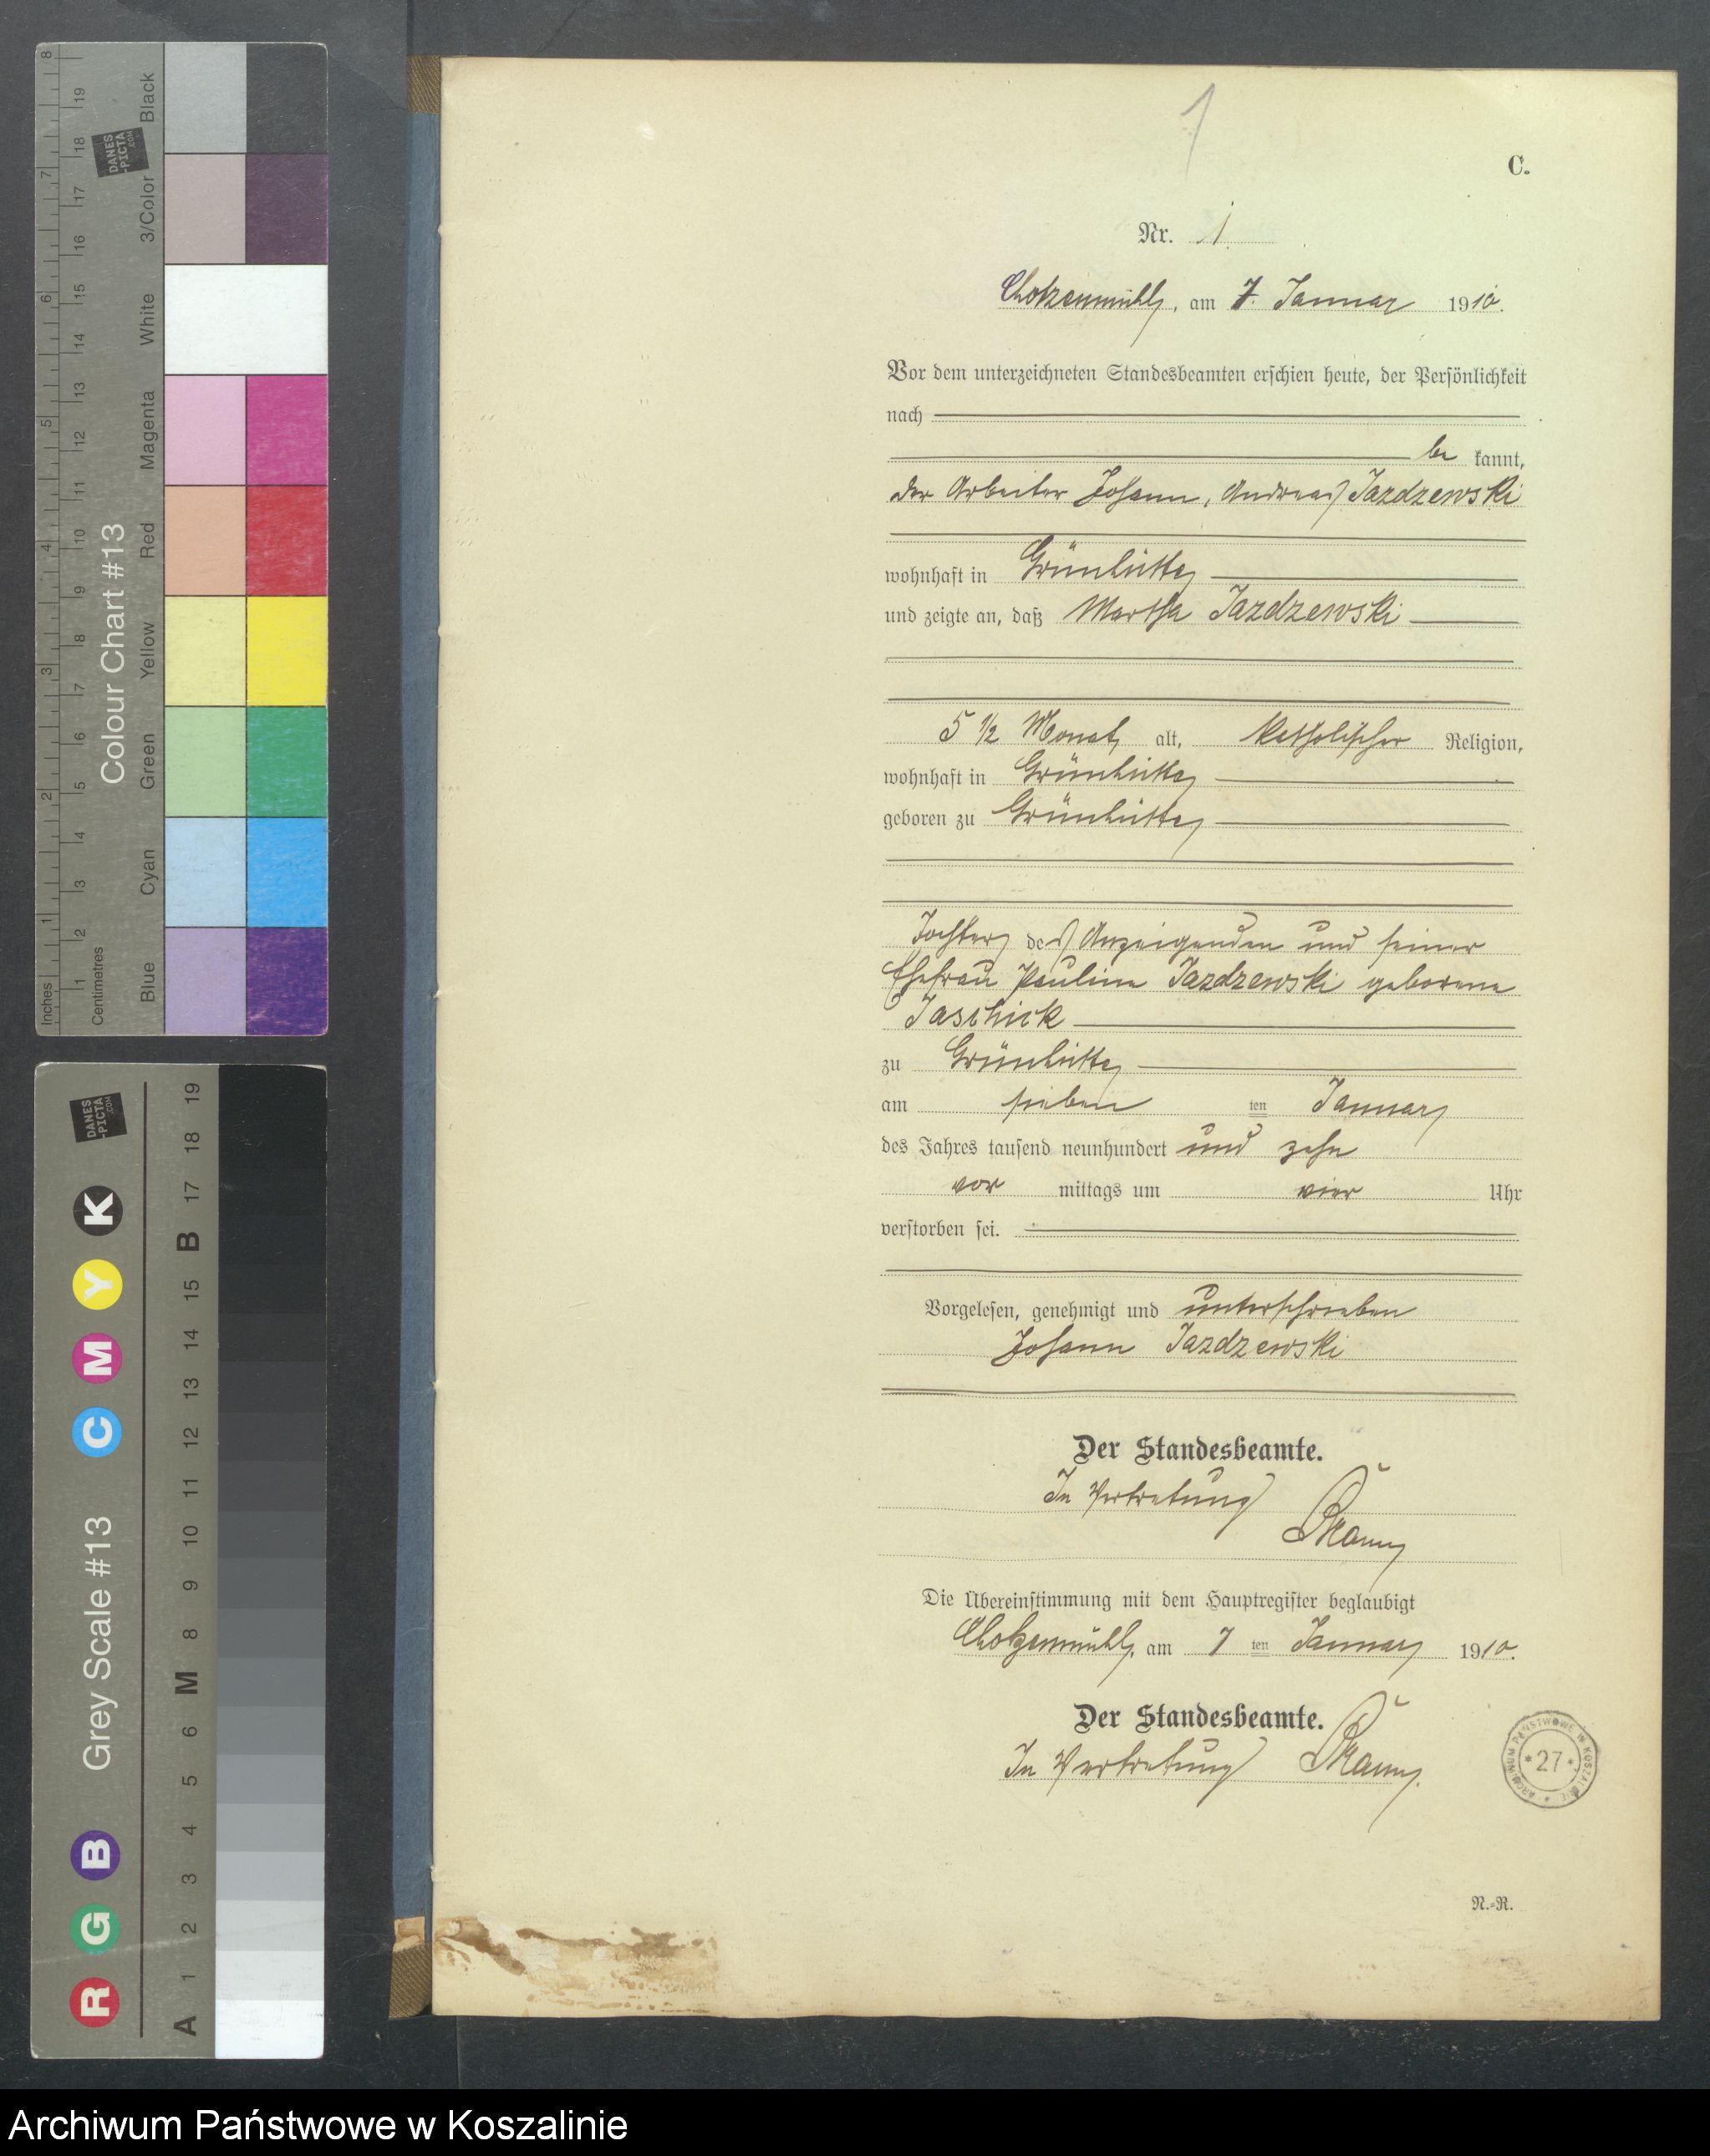 1
C.
Nr. 1.
Chotzenmühl, am 7. Januar 1910.
Vor dem unterzeichneten Standesbeamten erschien heute, der Persönlichkeit
nach
be kannt,
der Arbeiter Johann, Andreas Jazdzewski
wohnhaft in Grünhütte
und zeigte an, daß Martha Jazdzewski
5 1/2 Monat alt, katholischer Religion,
wohnhaft in Grünhütte
geboren zu Grünhütte
Tochter des Anzeigenden und seiner
Ehefrau Pauline Jazdzewski geborene
Jaschick
zu Grünhütte
am sieben ten Januar
des Jahres tausend neunhundert und zehn
vor mittags um vier Uhr
verstorben sei.
Vorgelesen, genehmigt und unterschrieben
Johann Jazdzewski
Der Standesbeamte.
In Vertretung
Die Übereinstimmung mit dem Hauptregister beglaubigt
Chotzenmühl, am 7 ten Januar 1910.
Der Standesbeamte.
In Vertretung
ARCHIWUM PAŃSTWOWE W KOSZALINIE
* 27 *
N.-R.
Inches 1 2 3 4 5 6 7 8
Centimetres 1 2 3 4 5 6 7 8 9 10 11 12 13 14 15 16 17 18 19
Colour Chart #13
DANES
-PICTA
.COM
Blue Cyan Green Yellow Red Magenta White 3/Color Black
Grey Scale #13
DANES
-PICTA
.COM
R G B C M Y K
A 1 2 3 4 5 6 M 8 9 10 11 12 13 14 15 B 17 18 19
Archiwum Państwowe w Koszalinie